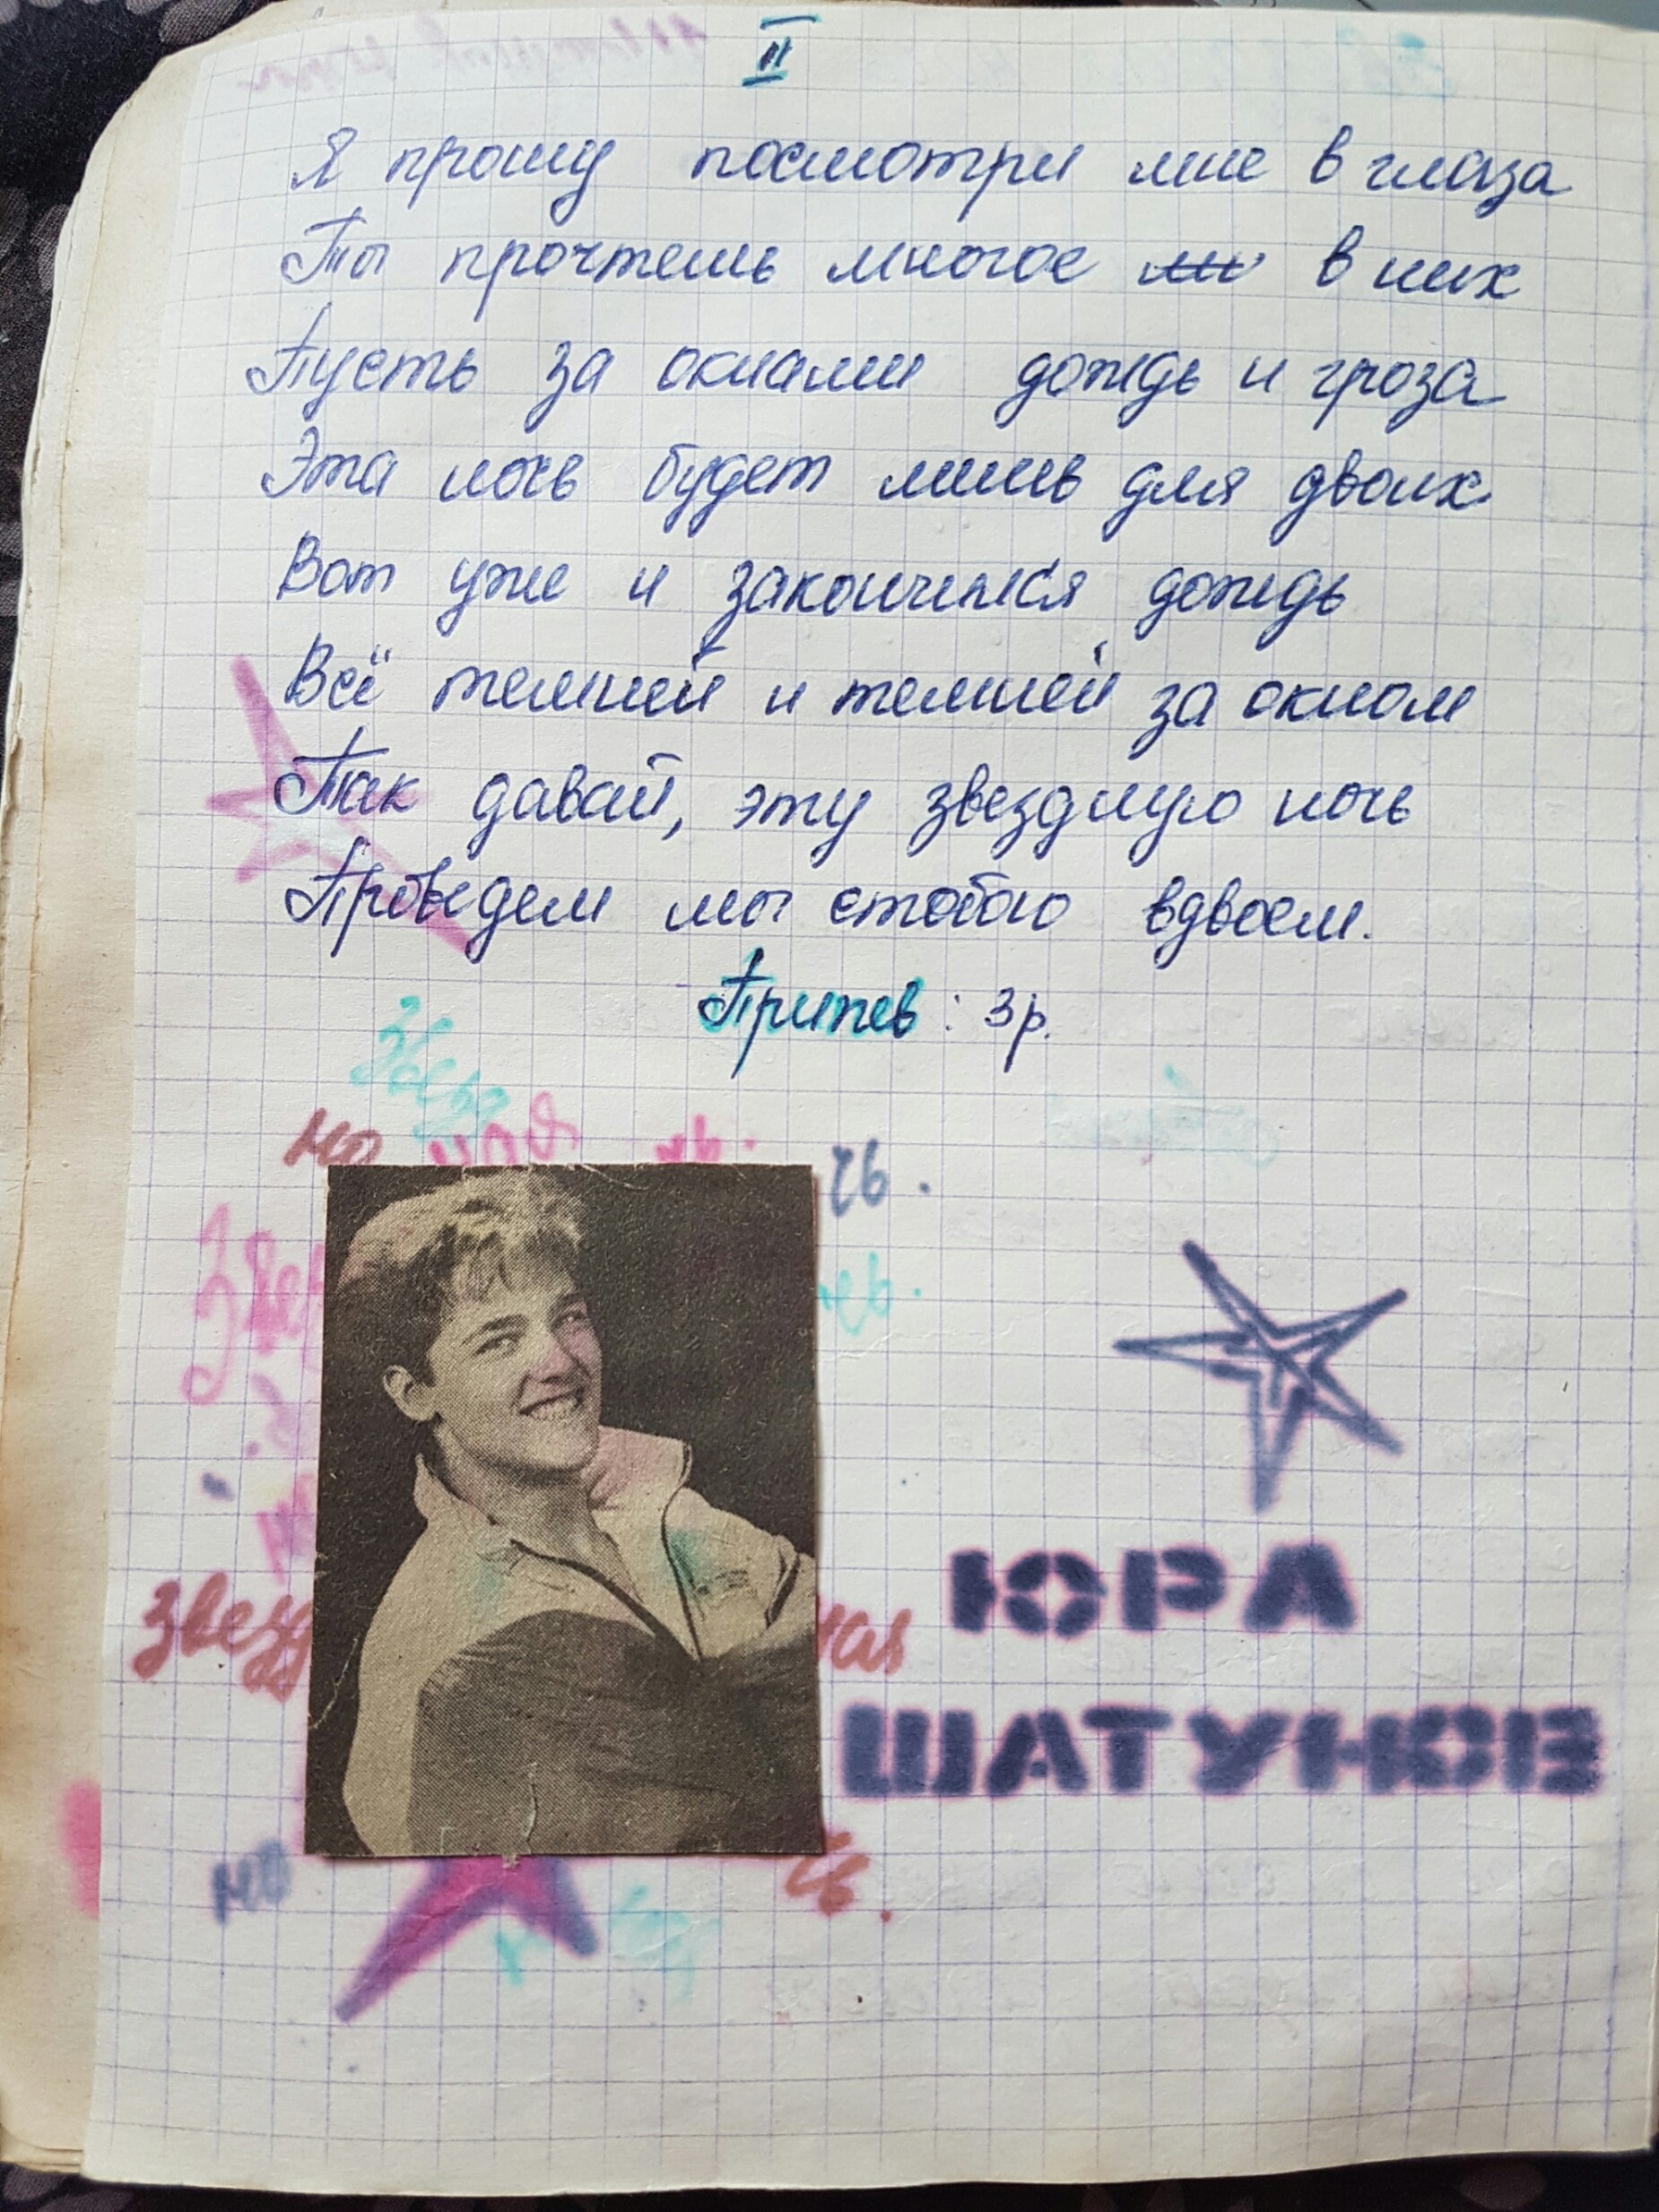 II
Я прошу посмотри мне в глаза
Ты прочтешь многое в них
Пусть за окнами дождь и гроза
Эта ночь будет лишь для двоих
Вот уже и закончился дождь
Всё темней и темней за окном
Так давай, эту звездную ночь
Проведем мы стобою вдвоем.
Припев: 3р.
но
чь.
звезд
ная
ЮРА
ШАТУНОВ
но
чь.